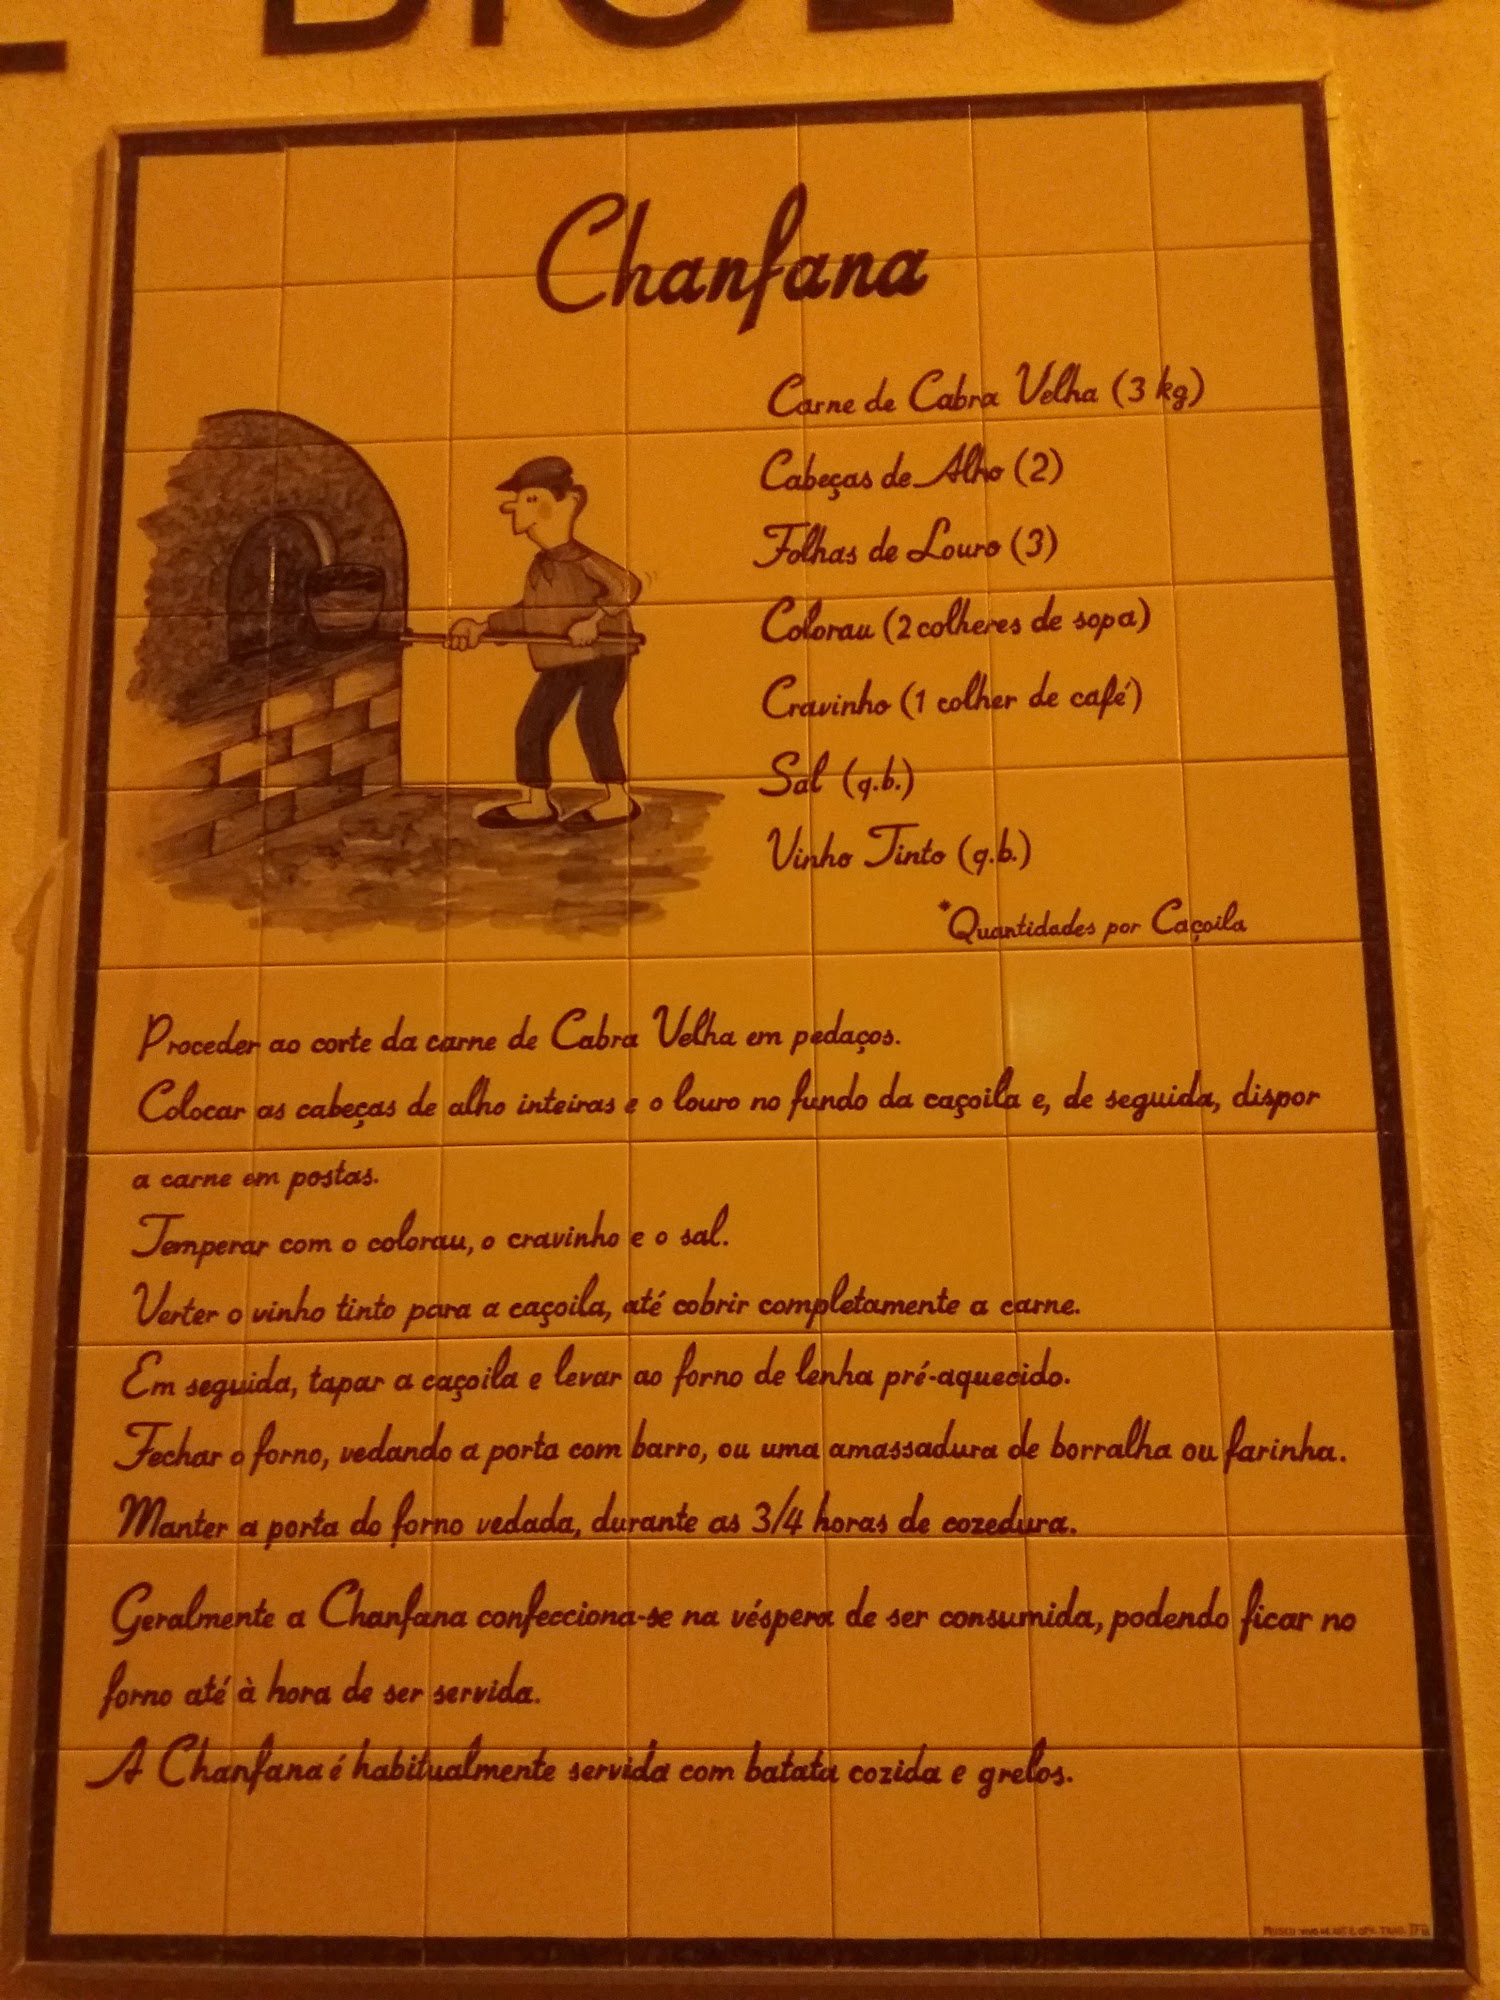 Chanfana
Carne de Cabra Velha (3 kg)
Cabeças de Alho (2)
Folhas de Louro (3)
Colorau (2 colheres de sopa)
Cravinho (1 colher de café)
Sal (q.b.)
Vinho Tinto (q.b.)
*Quantidades por Caçoila
Proceder ao corte da carne de Cabra Velha em pedaços.
Colocar as cabeças de alho inteiras e o louro no fundo da caçoila e, de seguida, dispor
a carne em postas.
Temperar com o colorau, o cravinho e o sal.
Verter o vinho tinto para a caçoila, até cobrir completamente a carne.
Em seguida, tapar a caçoila e levar ao forno de lenha pré-aquecido.
Fechar o forno, vedando a porta com barro, ou uma amassadura de borralha ou farinha.
Manter a porta do forno vedada, durante as 3/4 horas de cozedura.
Geralmente a Chanfana confecciona-se na véspera de ser consumida, podendo ficar no
forno até à hora de ser servida.
A Chanfana é habitualmente servida com batata cozida e grelos.